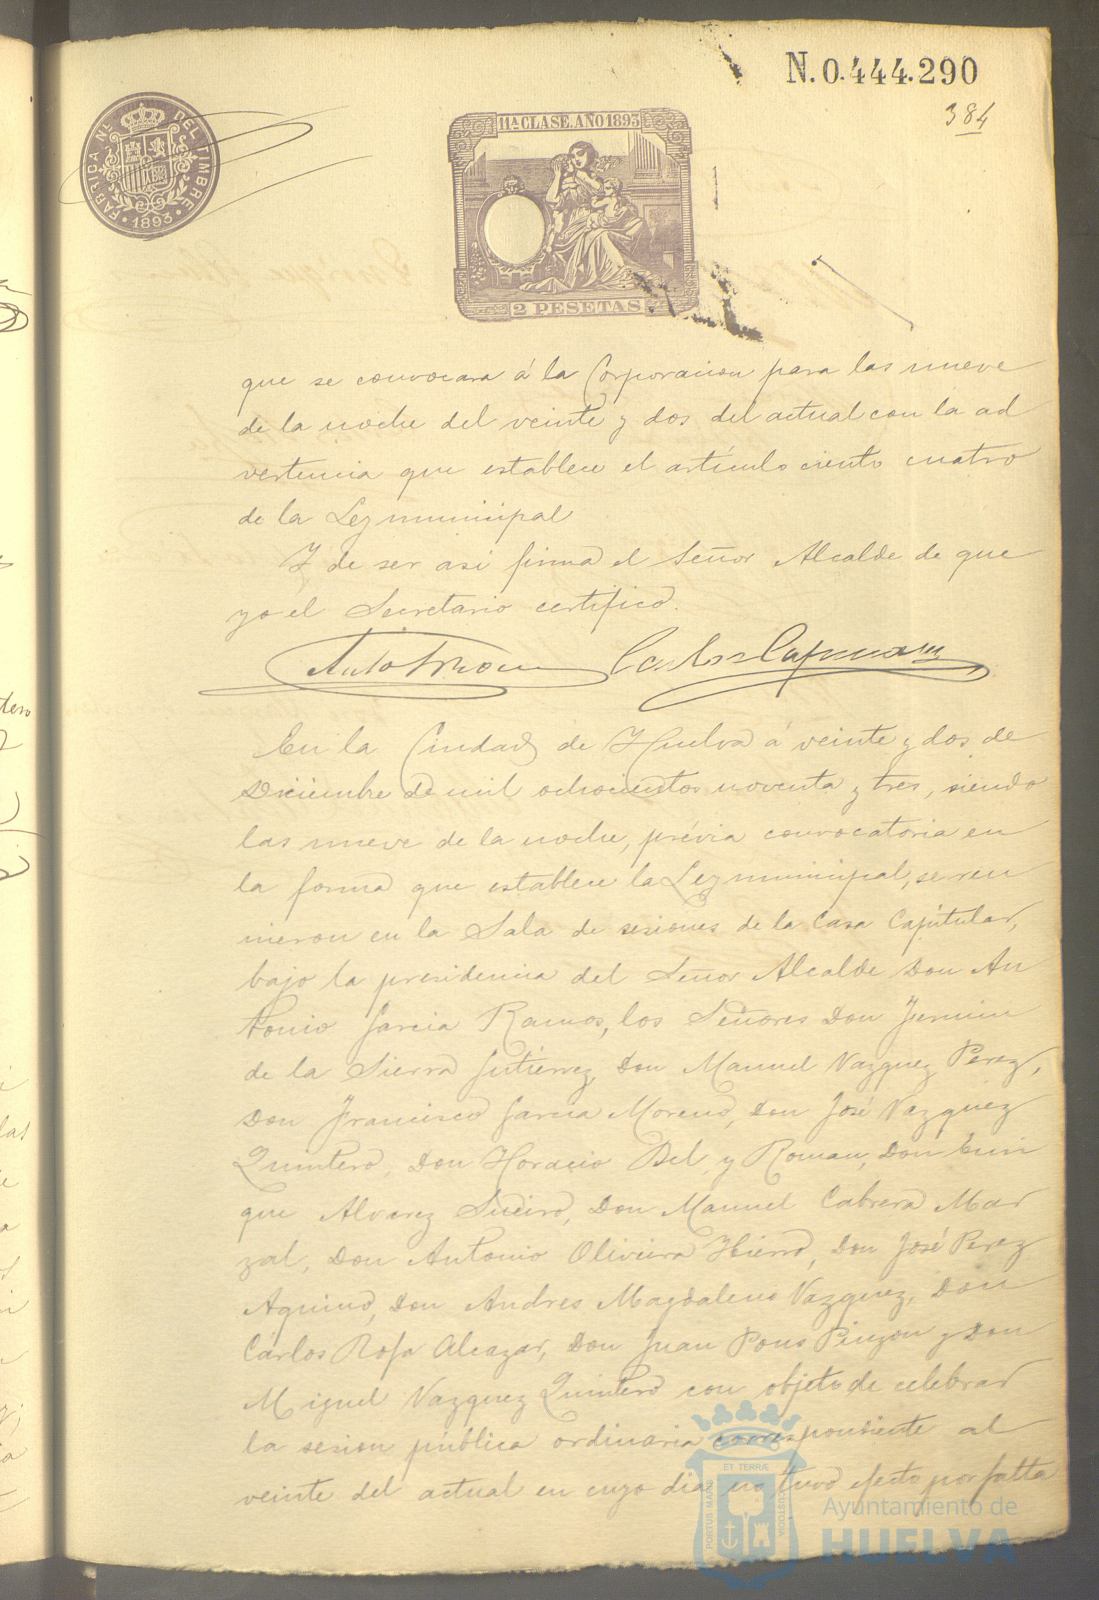 N. 0.444.290
384
FABRICA NL. DEL TIMBRE
1893
11ª CLASE. AÑO 1893
2 PESETAS
que se convocara á la Corporacion para las nueve
de la noche del veinte y dos del actual con la ad
vertencia que establece el artículo ciento cuatro
de la Ley municipal
Y de ser asi firma el Señor Alcalde de que
yo el Secretario certifico.
En la Ciudad de Huelva á veinte y dos de
Diciembre de mil ochocientos noventa y tres, siendo
las nueve de la noche, prévia convocatoria en
la forma que establece la Ley municipal, se reu
nieron en la Sala de sesiones de la Casa Capitular,
bajo la presidencia del Señor Alcalde Don An
tonio Garcia Ramos, los Señores Don Fermin
de la Sierra Gutierrez, Don Manuel Vazquez Perez,
Don Francisco Garcia Moreno, Don José Vazquez
Quintero, Don Horacio Bel y Roman, Don Enri
que Alvarez Sueiro, Don Manuel Cabrera Mar
zal, Don Antonio Oliveira Hierro, Don José Perez
Aquino, Don Andres Magdaleno Vazquez, Don
Cárlos Rofa Alcazar, Don Juan Pons Pinzon y Don
Miguel Vazquez Quintero con objeto de celebrar
la sesion pública ordinaria correspondiente al
veinte del actual en cuyo dia no tuvo efecto por falta
PORTUS MARIS ET TERRÆ CUSTODIA
Ayuntamiento de
HUELVA